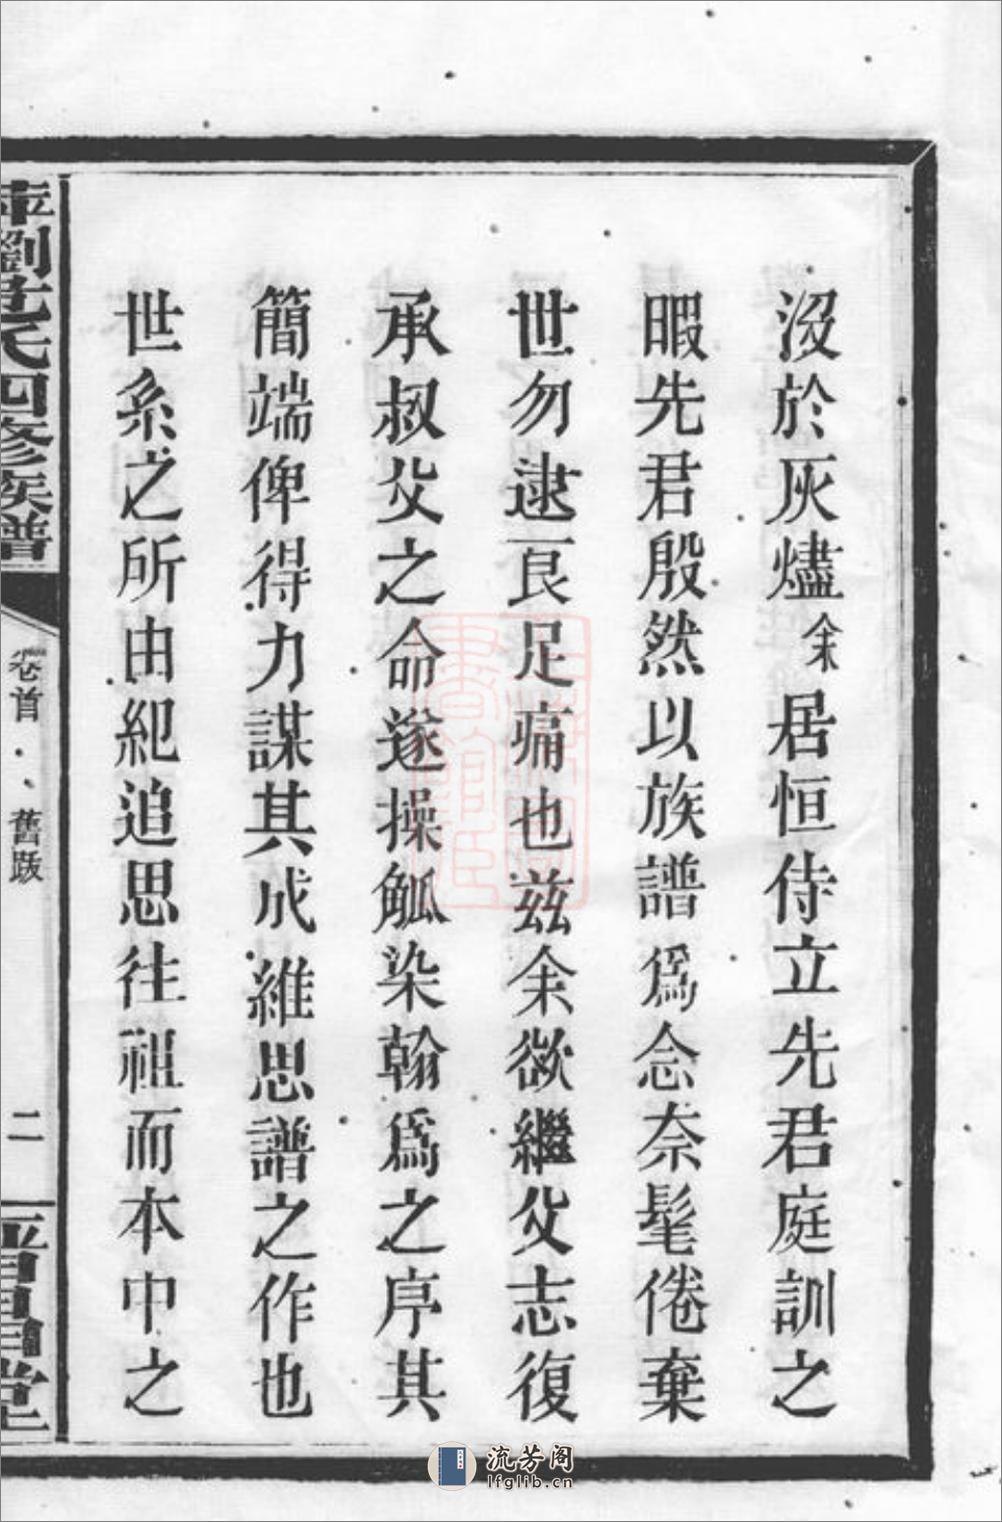 沒於灰燼余居恒侍立先君庭訓之
暇先君殷然以族譜爲念奈髦倦棄
世勿逮良足痛也兹余欲繼父志復
承叔父之命遂操觚染翰爲之序其
簡端俾得力謀其成維思譜之作也
世系之所由紀追思往祖而本中之
劉氏四修族譜
卷首 舊跋
二
堂
流芳阁
lfglib.cn